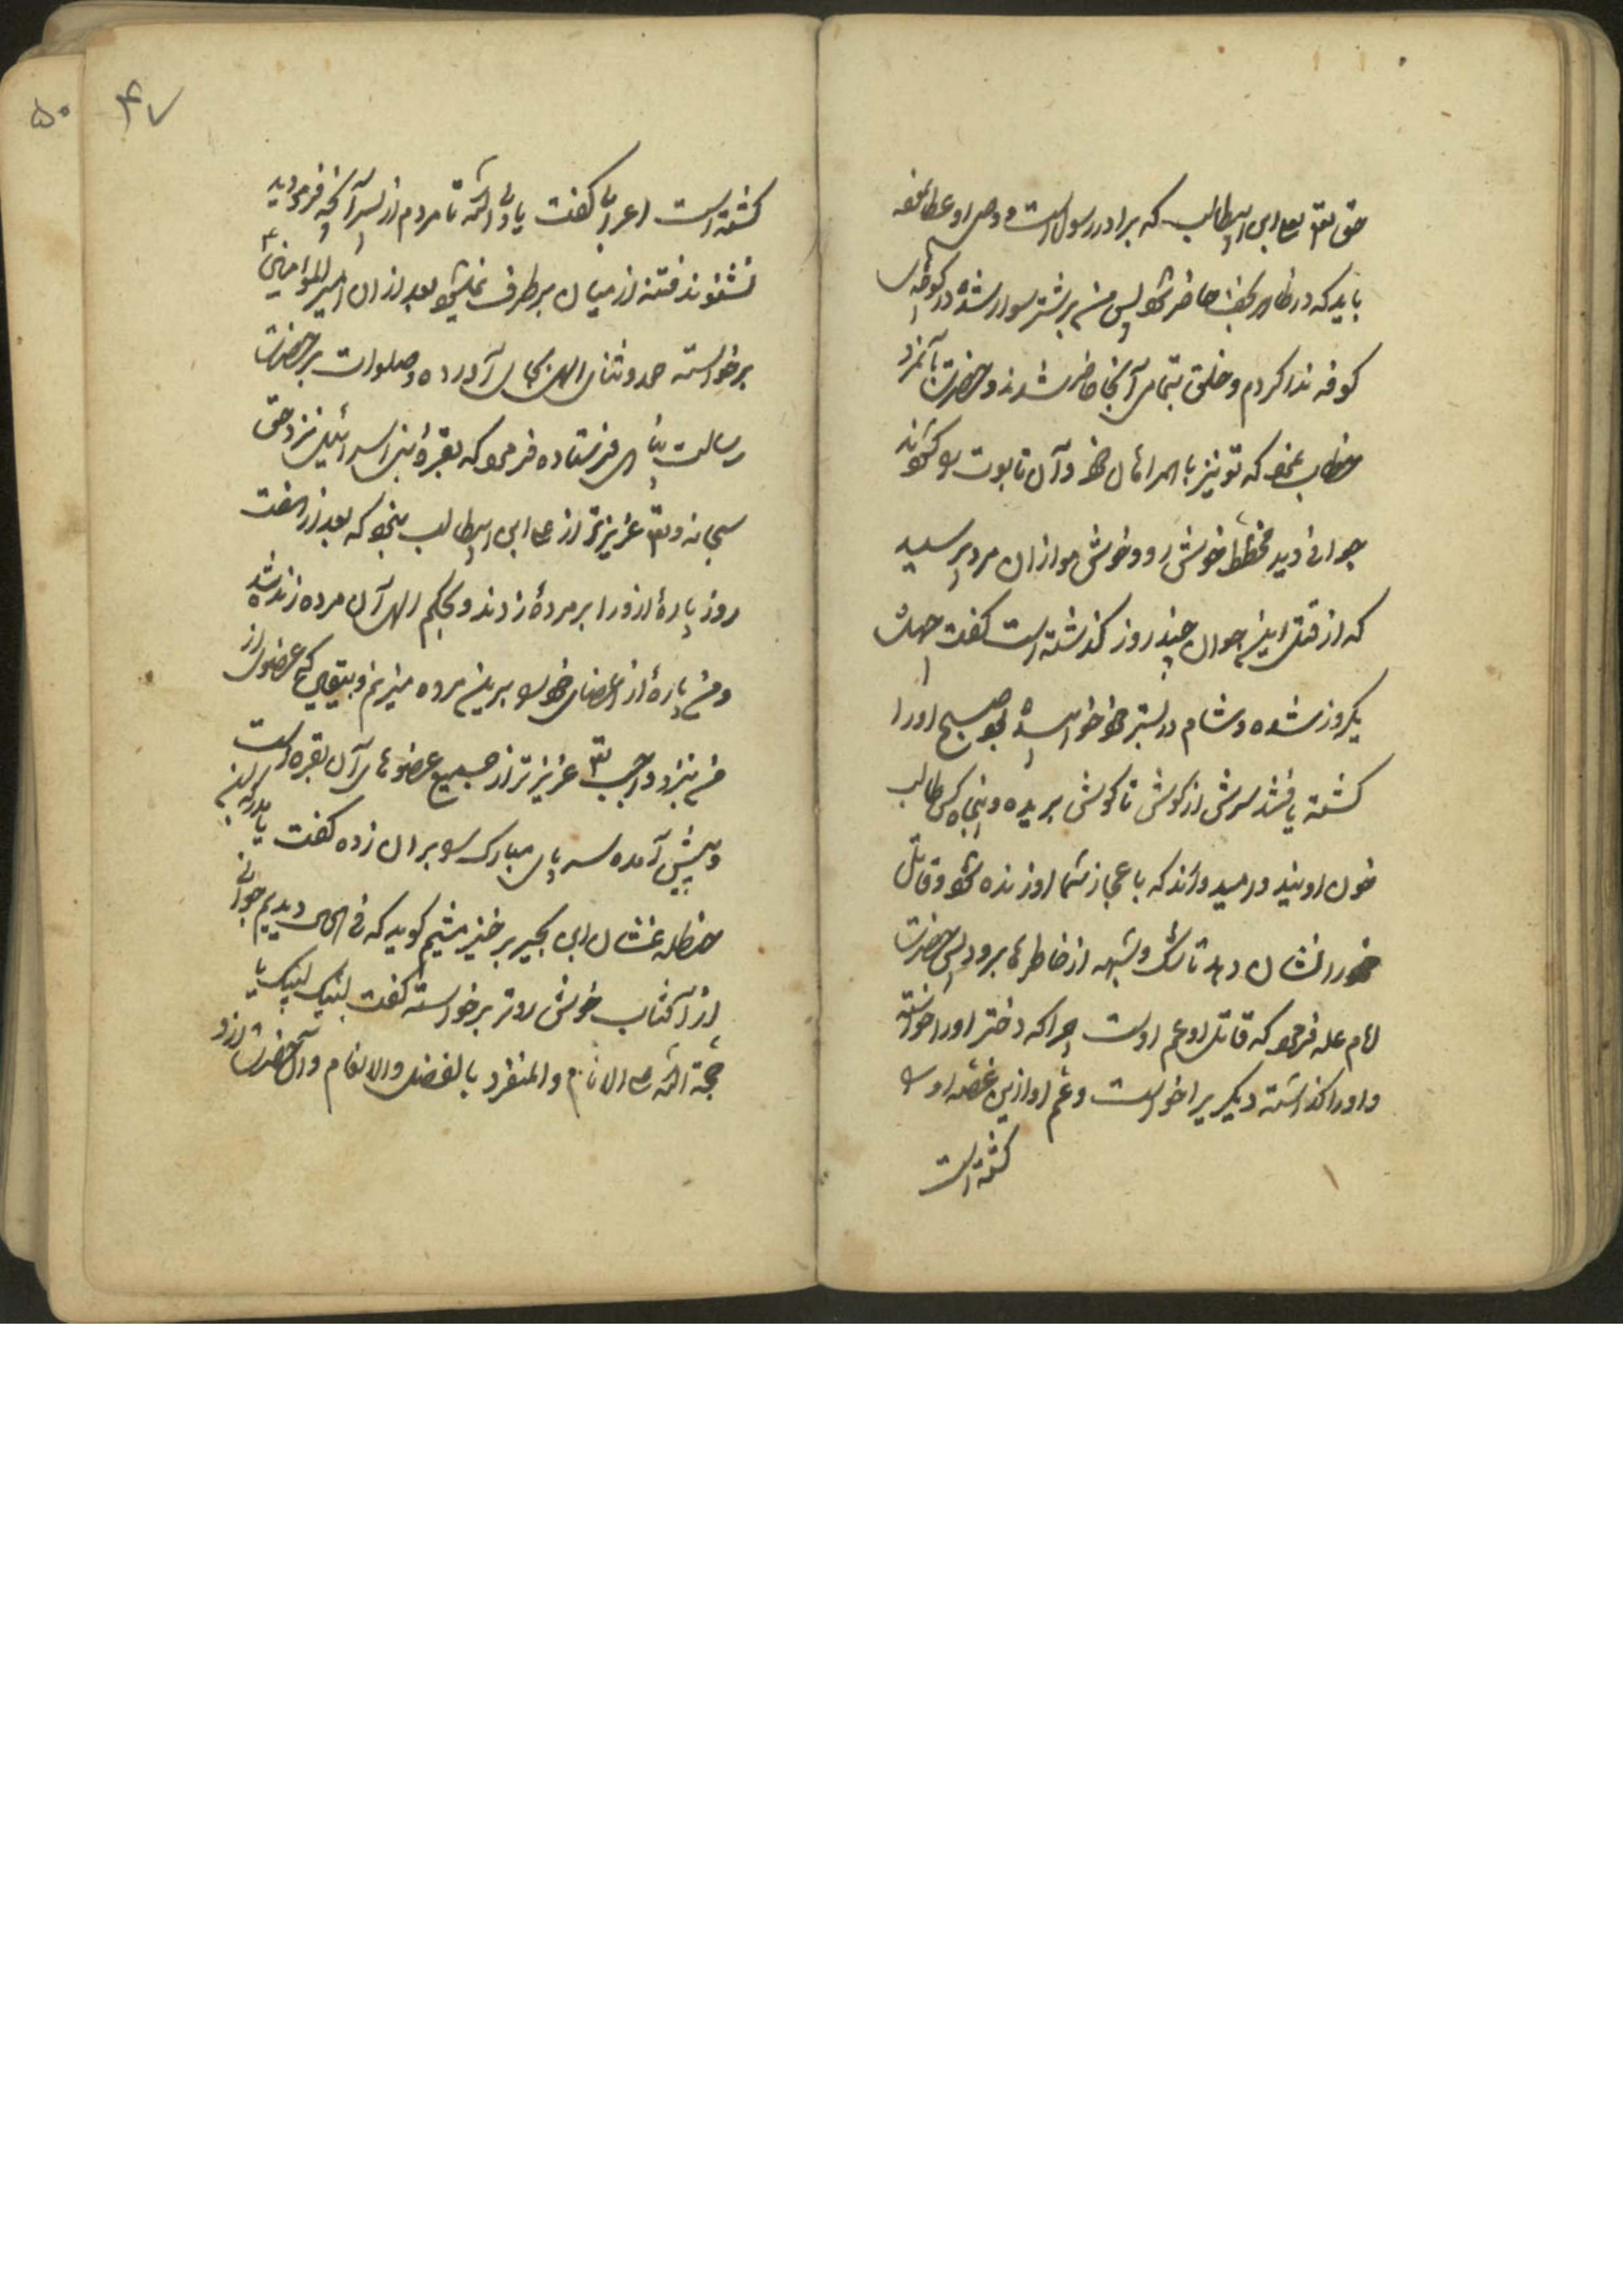 حق تعالی بعلی ابن ابیطالب که برادر رسول است و وصی او عطا نموده
باید که در ظاهر نجف حاضر شود پس من بر شتر سوار شده در کوچهای
کوفه ندا کردم و خلق بتمامی آنجا حاضر شدند و حضرت با آنمرد
خطاب نمود که تو نیز با همراهان خود و آن تابوت را بگشودند
جوانی دید مخطط خوش رو و خوش مو از ان مرد پرسید
که از قتل این جوان چند روز گذشته است گفت چهل
یکروز شده و شام در بستر خود خوابیده بود صبح او را
کشته یافتند سرش از گوش تا گوش بریده و پنجاه کس طالب
خون اویند و امیدوارند که باعجاز شما او زنده شود و قاتل
خود را نشان دهد تا شک و شبهه از خاطرها برود پس حضرت
امام علیه فرمود که قاتل او عم اوست چرا که دختر او را خواسته
و او را گذاشته دیگریرا خواست و عم او ازین غصه او را
کشته است
۵۰ ۴۷
کشته است اعرابی گفت یا ولی الله تا مردم از پسر آنچه فرمودید
نشنوند فتنه از میان برطرف نمیشود بعد از ان امیرالمؤمنین ع
برخواسته حمد و ثنای الهی بجای آورده و صلوات بر حضرت
رسالت پناهی فرستاده فرمود که بقرهٔ بنی اسرائیل نزد حق
سبحانه و تعالی عزیزتر از علی ابن ابیطالب نبود که بعد از هفت
روز پارهٔ از و را بر مردهٔ زدند و بحکم الهی آن مرده زنده شد
و من پارهٔ از اعضای خود را برین مرده میزنم و بیقین که عضوی از
من بنزد واجب تعالی عزیزتر از جمیع عضوهای آن بقره است
و پیش آمده سر پای مبارک را بر ان زده گفت یا مدرکه ابن
حنظله غسان ابن بحیر برخیز میثم گوید که فی الحال دیدیم جوانی
از آفتاب خوش روتر برخواسته گفت لبیک لبیک یا
حجة الله علی الانام و المنفرد بالفضل و الانعام و آنحضرت از و